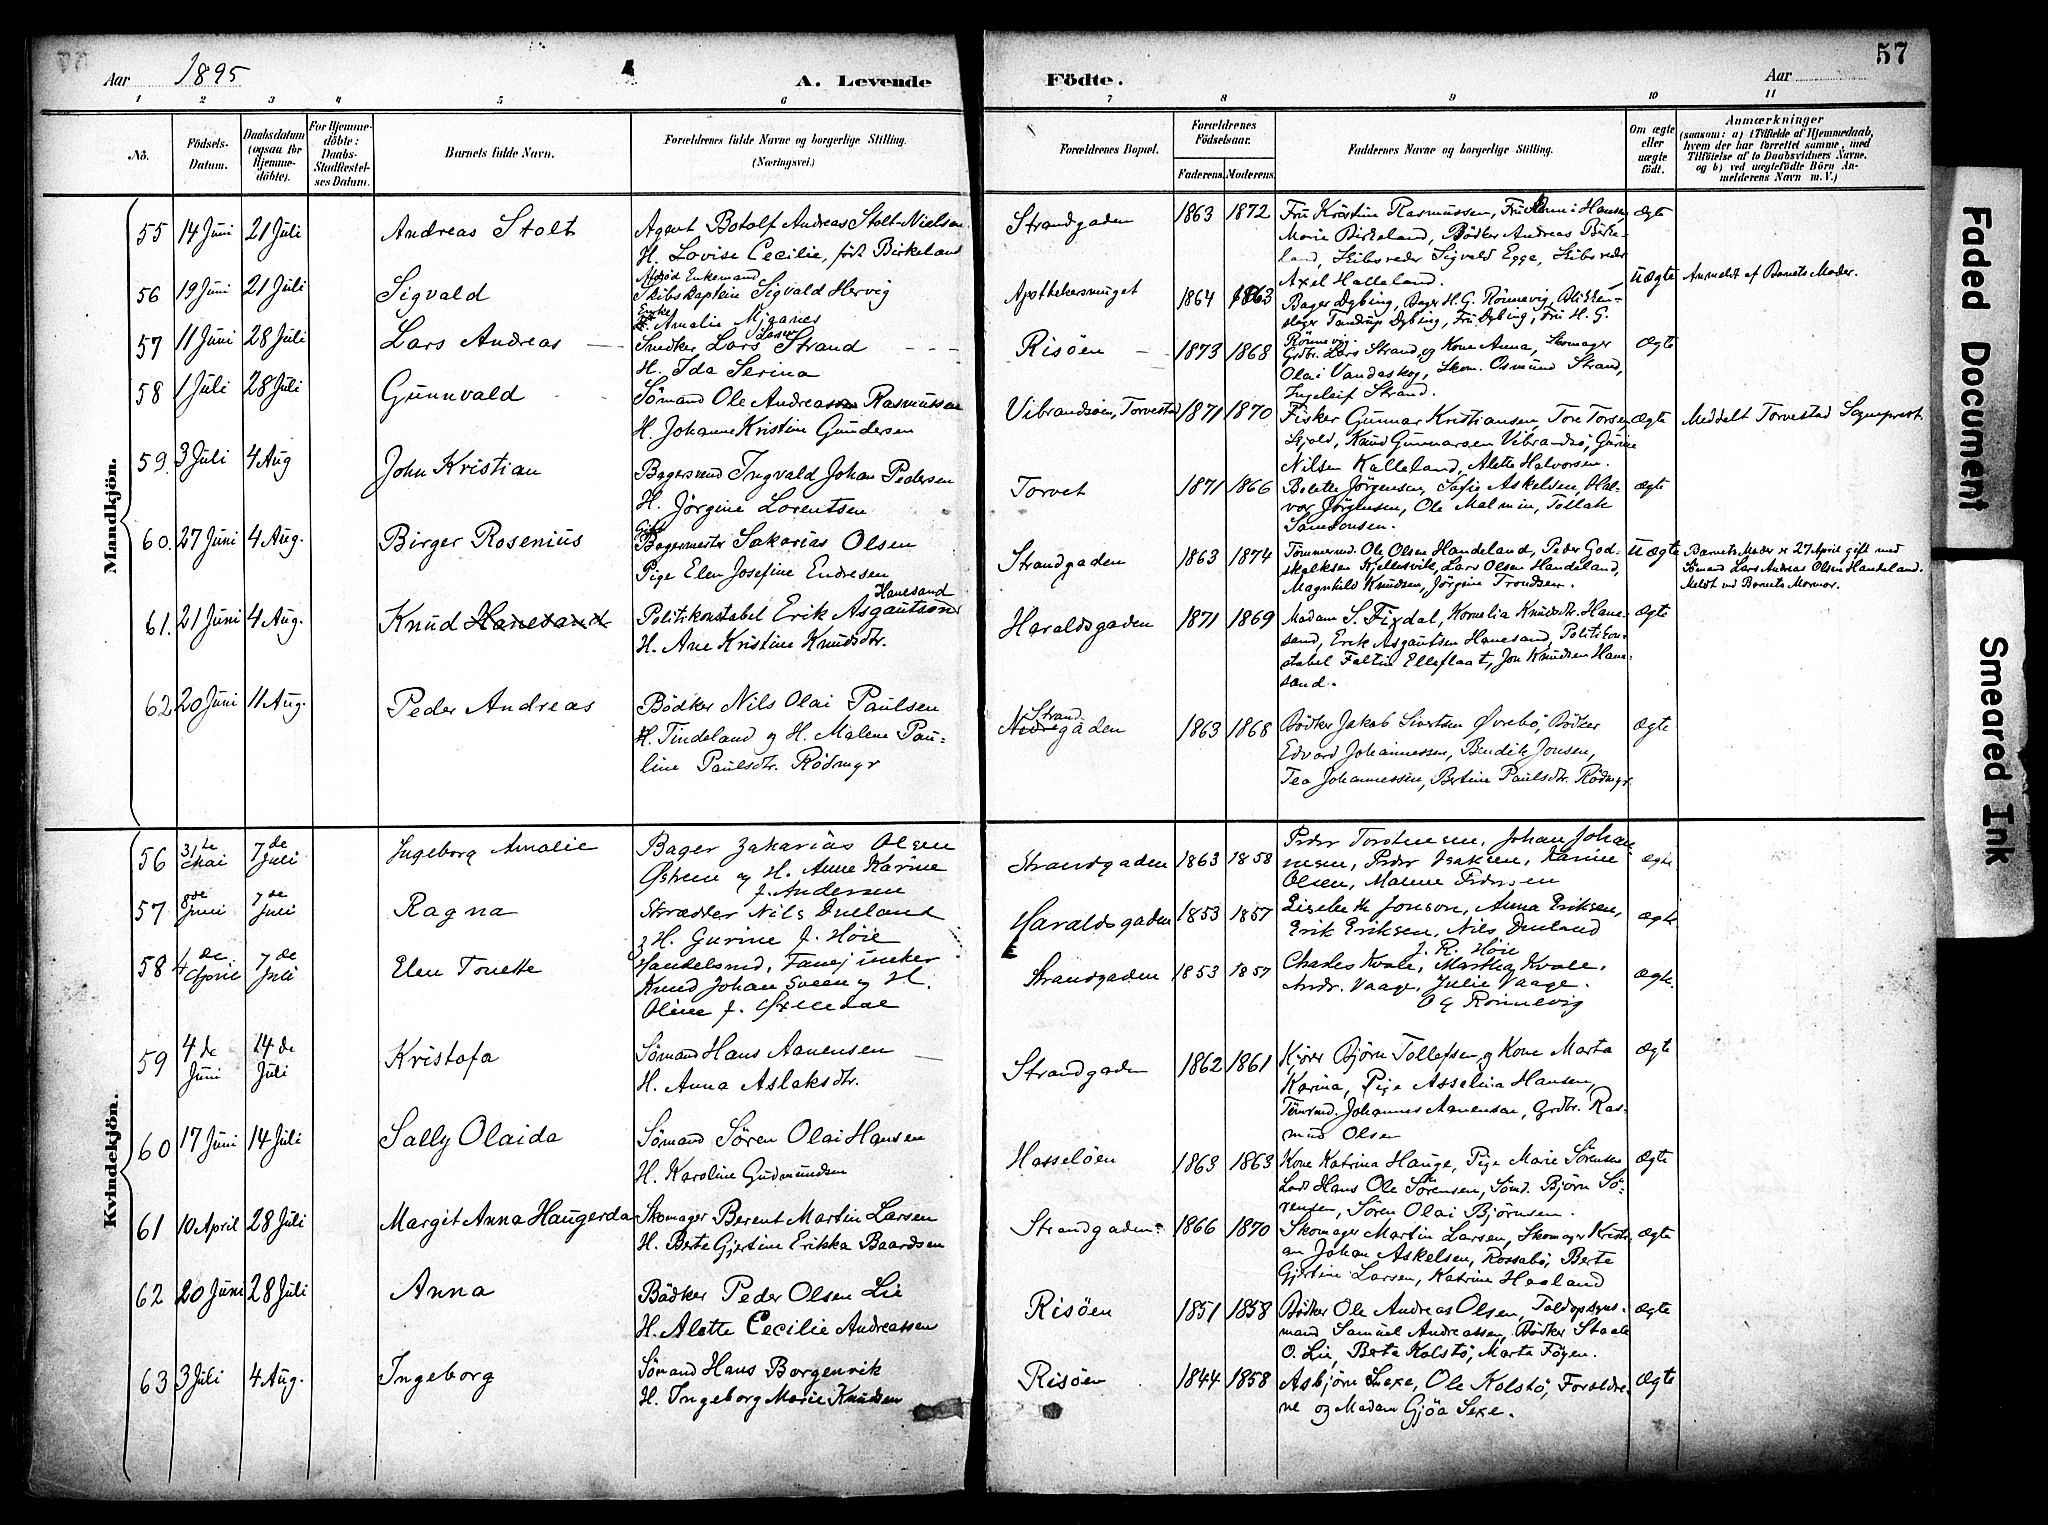 57
Aar 1895
A. Levende
Födte.
Aar
1 2 3 4 5 6 7 8 9 10 11
No.
Födsels-Datum.
Daabsdatum (ogsaa for Hjemme-döbte).
For Hjemme-döbte: Daabs-Stadfæstel-ses Datum.
Barnets fulde Navn.
Forældrenes fulde Navne og borgerlige Stilling. (Næringsvei.)
Forældrenes Bopæl.
Forældrenes Födselsaar.
Faderens. Moderens.
Faddernes Navne og borgerlige Stilling.
Om ægte eller uægte födt.
Anmærkninger
(saasom: a) i Tilfælde af Hjemmedaab,
hvem der har forrettet samme, med
Tilföielse af to Daabsvidners Navne,
og b) ved uægtefödte Börn An-
melderens Navn m. V.)
Mandkjön.
55 14 Juni 21 Juli Andreas Stolt
Agent Botolf Andreas Stolt-Nielsen
H. Lovise Cecilie, født Birkeland
Strandgaden 1863 1872
Fru Kristine Rasmussen, Fru Hansen,
Marie Birkeland, Bødker Andreas Birke-
land, Skibsreder Sigvald Egge, Skibsreder
Axel Halleland.
ægte
56 19 Juni 21 Juli Sigvald
Enkemand
Skibskaptein Sigvald Hervig
Enke
Amalie Mjaanes
Apothekersmuget 1864 1863
Bager Dybing, Bager H. G. Rønnevig, Blikken-
slager Tandrup Dybing, Fru Dybing, Fru H. G.
Rønnevig.
uægte Anmeldt af Barnets Moder.
57 11 Juni 28 Juli Lars Andreas
Snedker Lars Larsen Strand
H. Ida Serina
Risøen 1873 1868
Grdbr. Lars Strand og Kone Anna, Skomager
Olai Vandaskog, Skom. Osmund Strand,
Ingeleif Strand.
Ægte
58 1 Juli 28 Juli Gunnvald
Sømand Ole Andreas Rasmussen
H. Johanne Kristine Gundersen
Vibrandsøen, Torvestad 1871 1870
Fisker Gunnar Kristiansen, Tore Torsen
Skjold, Knud Gunnarsen Vibrandsø,
Nilsen Kalleland, Alette Halvorsen.
ægte Meddelt Torvestad Sogneprest
59. 3 Juli 4 Aug John Kristian
Bagersvend Ingvald Johan Pedersen
H. Jørgine Lorentsen
Torvet 1871 1866
Bolette Jørgensen, Sofie Askelsen, Hal-
vor Jørgensen, Ole Malmin, Tollak
Samsonsen.
ægte
60. 27 Juni 4 Aug. Birger Rosenius
Gift
Bagermester Sakarias Olsen
Pige Elen Josefine Endresen
Strandgaden 1863 1874
Tømmermd. Ole Olsen Handeland, Peder God-
skalksen Kjellesvik, Lars Olsen Handeland,
Magnhild Knudsen, Jørgine Trondsen.
uægte
Barnets Moder er 27 April gift med
Sømand Lars Andreas Olsen Handeland.
Meldt ved Barnets Mormor.
61. 21 Juni 4 Aug. Knud Hanesand
Hanesand
Politikonstabel Erik Asgautson
H. Ane Kristine Knudsdtr.
Haraldsgaden 1871 1869
Madam S. Fixdal, Kornelia Knudsdtr. Hane-
sand, Erik Asgautsen Hanesand, Politikon-
stabel Faltin Elleflaat, Jon Knudsen Hane-
sand.
ægte
62 20 Juni 11 Aug. Peder Andreas
Bødker Nils Olai Paulsen
Tindeland og H. Malene Pau-
line Paulsdtr. Rødmyr
Strand-
Nedregaden 1863 1868
Bødker Jakob Sivertsen Øvrebø, Bødker
Edvard Johannessen, Bendik Jonsen,
Tea Johannessen, Bertine Paulsdtr. Rødmyr.
ægte
Kvindekjön.
56 31te Mai 7de Juli Ingeborg Amalie
Bager Zakarias Olsen
Østrem og H. Anne Karine
f. Andersen
Strandgaden 1863 1858
Peder Torstensen, Johan Johan-
nesen, Peder Isaksen, Karine
Olsen, Malene Pedersen
ægte
57 8de Juni 7de Juli Ragna
Skrædder Nils Dueland
og H. Gurine f. Høie
Haraldsgaden 1853 1857
Liesbeth Jonson, Anna Eriksen,
Erik Eriksen, Nils Dueland
J. R. Høie
ægte
58 4de April 7de Juli Elen Tonette
Handelsmd. Fanejunker
Knud Johan Sveen og H.
Oline f. Øxendal
Strandgaden 1853 1857
Charles Kvale, Martha Kvale,
Andr. Vaage, Julie Vaage.
O G Rønnevig
ægte.
59 4de Juni 14de Juli Kristofa
Sømand Hans Aanensen
H. Anna Aslaksdtr.
Strandgaden 1862 1861
Kjører Bjørn Tollefsen og Kone Marta
Karina, Pige Asselina Hansen,
Tømmrmd. Johannes Aanensen, Grdbr. Ras-
mus Olsen
Ægte
60 17 Juni 14 Juli Sally Olaida
Sømand Søren Olai Hansen
H. Karoline Gudmundsen
Hasseløen 1863 1863
Kone Katrina Hauge, Pige Marie Sørensen
Lods Hans Ole Sørensen, Sømd. Bjørn Sø-
rensen, Søren Olai Bjørnsen.
Ægte
61 10 April 28 Juli Margit Anna Haugerda
Skomager Berent Martin Larsen
H. Berte Gjertine Erikka Baardsen
Strandgaden 1866 1870
Skomager Martin Larsen, Skomager Kristi-
an Johan Askelsen, Rossabø, Berte
Gjertine Larsen, Katrine Haaland
ægte
62 20 Juni 28 Juli Anna
Bødker Peder Olsen Lie
H. Alette Cecilie Andreassen
Risøen 1851 1858
Bødker Ole Andreas Olsen, Toldopsyns-
mand Samuel Andreassen, Bødker Staale
O. Lie, Berta Kolstø, Marta Føyen.
ægte
63 3 Juli 4 Aug. Ingeborg
Sømand Hans Borgenvik
H. Ingeborg Marie Knudsen
Risøen 1844 1858
Asbjørn Sexe, Ole Kolstø, Forældre-
ne og Madam Gjøa Sexe.
Ægte
Faded Document
Smeared Ink